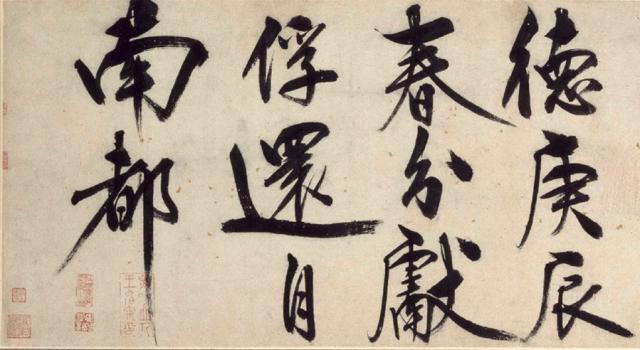 德庚辰
春分獻
俘還自
南都